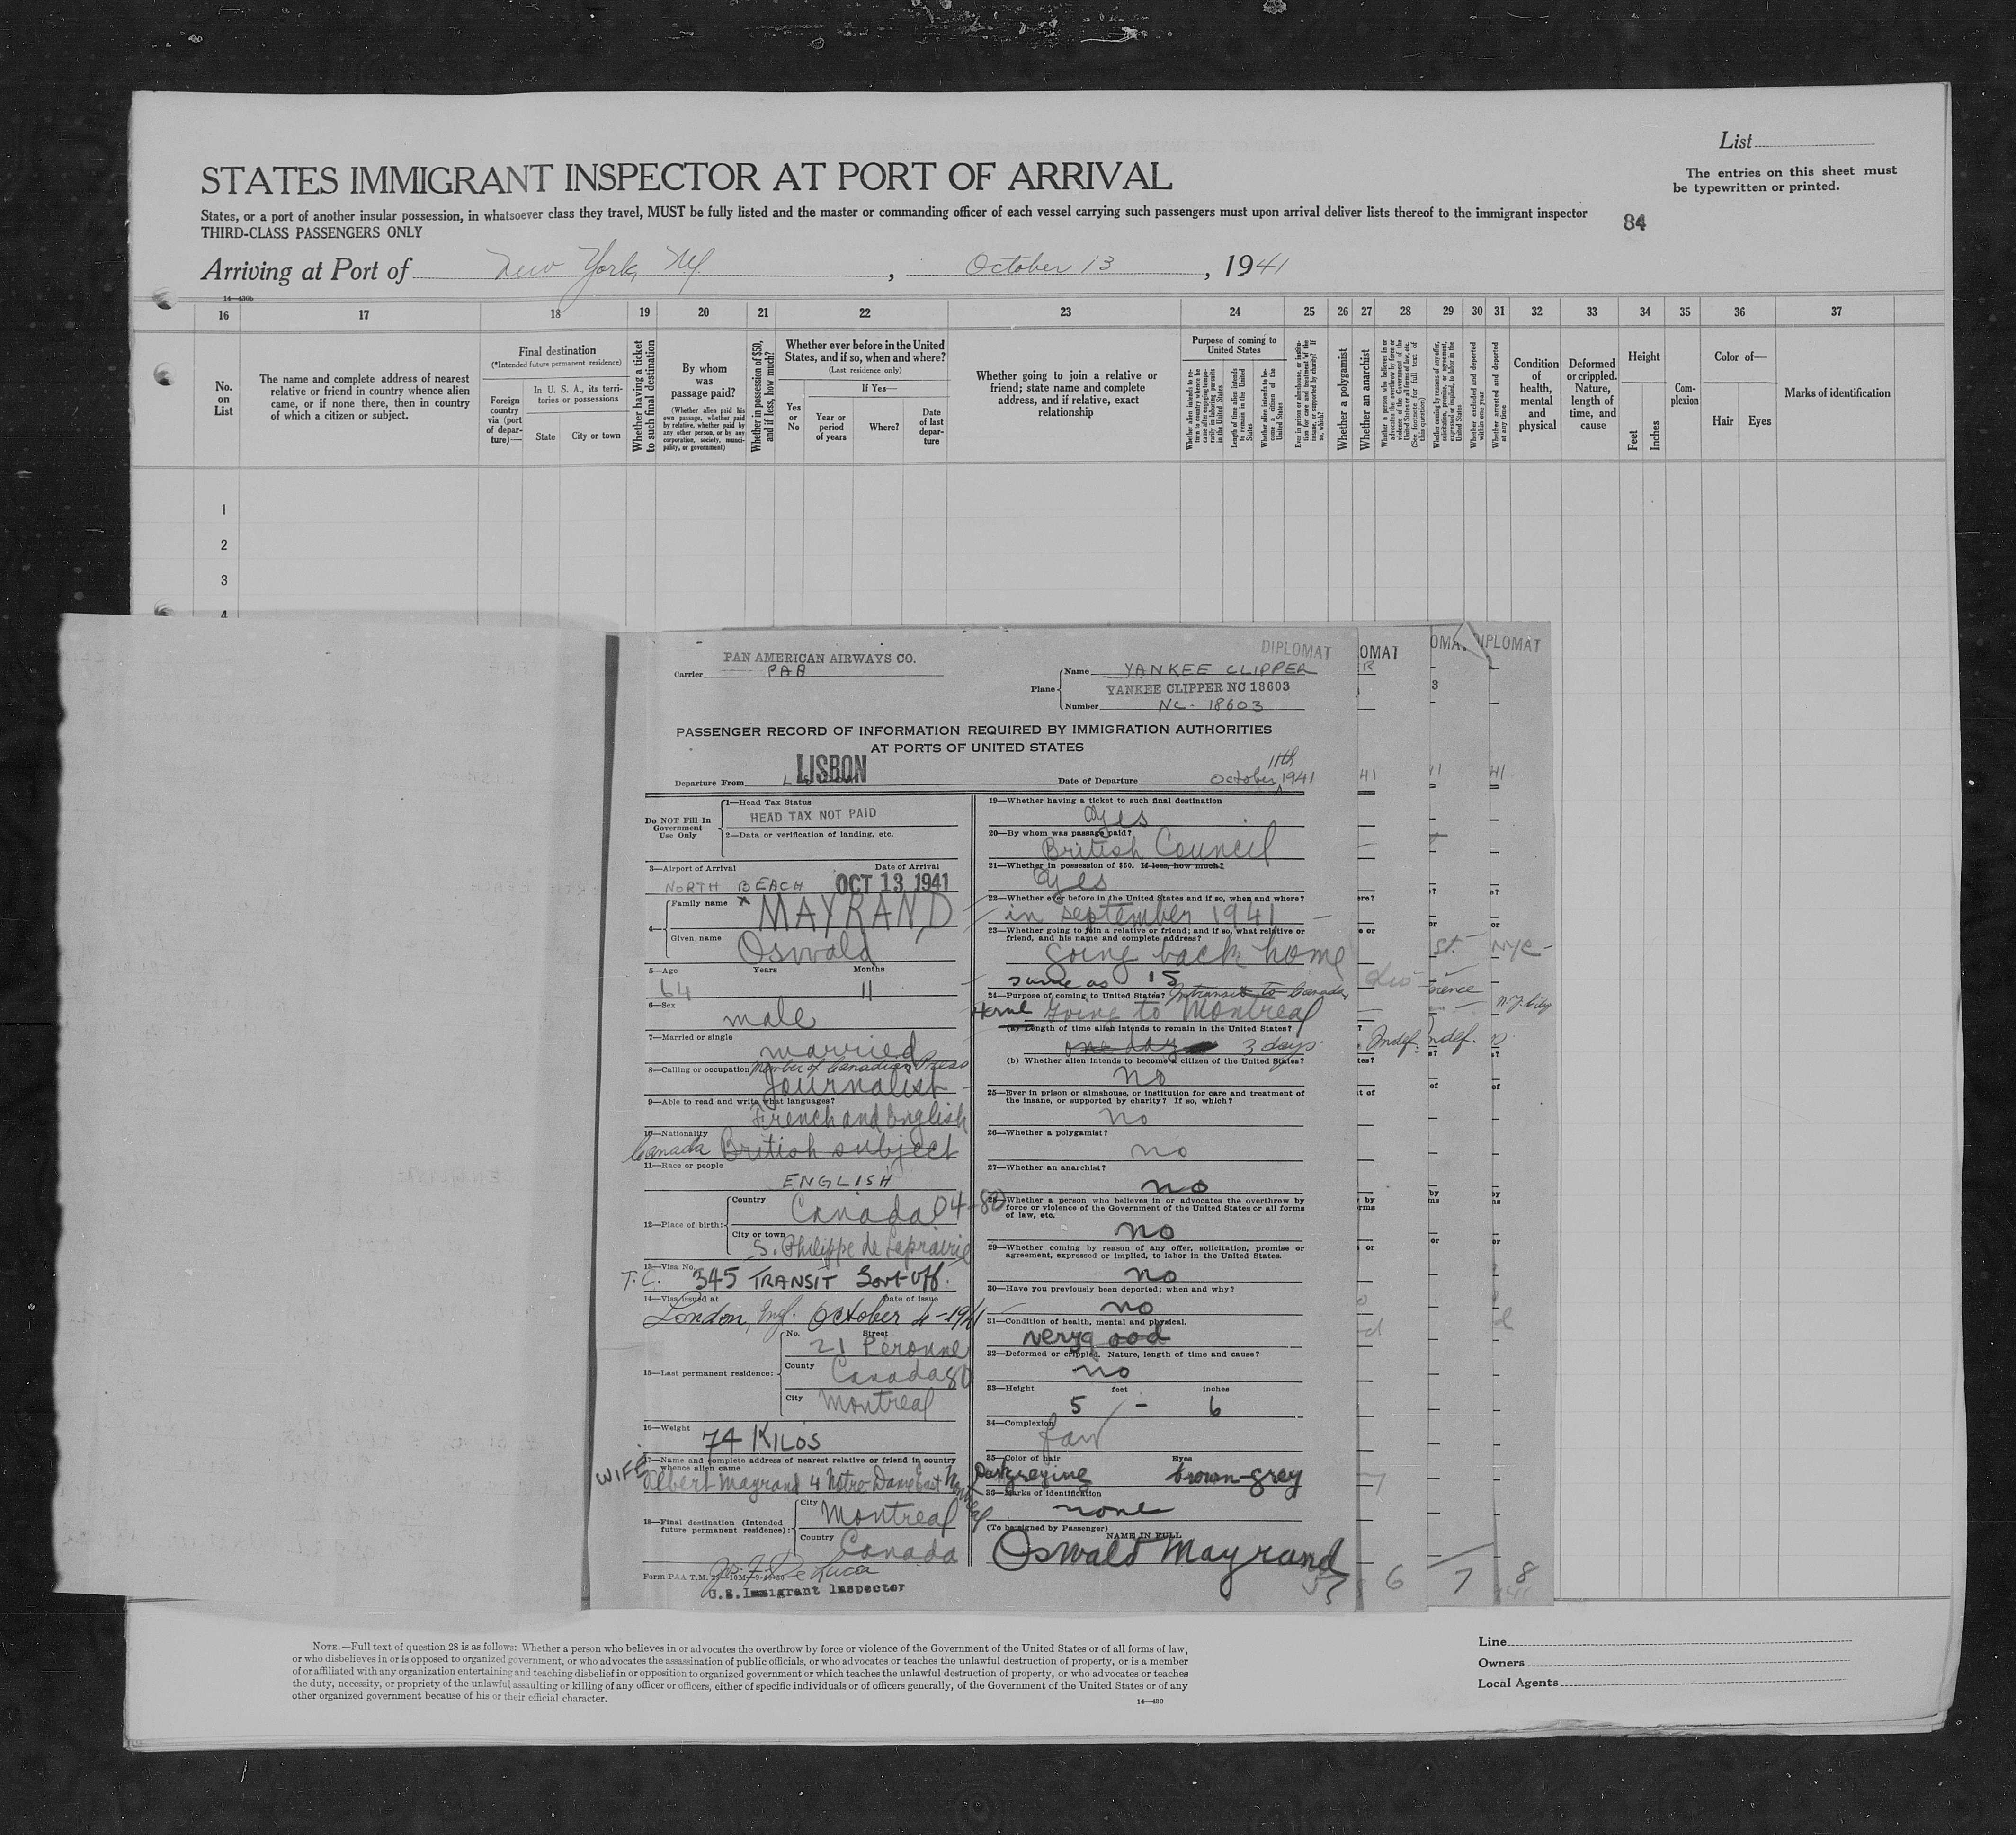 List
The entries on this sheet must
be typewritten or printed.
STATES IMMIGRANT INSPECTOR AT PORT OF ARRIVAL
States, or a port of another insular possession, in whatsoever class they travel, MUST be fully listed and the master or commanding officer of each vessel carrying such passengers must upon arrival deliver lists thereof to the immigrant inspector
THIRD-CLASS PASSENGERS ONLY
84
Arriving at Port of New York, NY , October 13 , 1941
16 17 18 19 20 21 22 23 24 25 26 27 28 29 30 31 32 33 34 35 36 37
No. on List
The name and complete address of nearest relative or friend in country whence alien came, or if none there, then in country of which a citizen or subject.
Final destination
(*Intended future permanent residence)
Foreign country via (port of departure)—
In U. S. A., its territories or possessions
State
City or town
Whether having a ticket to such final destination
By whom was passage paid?
(Whether alien paid his own passage, whether paid by relative, whether paid by any other person, or by any corporation, society, municipality, or government)
Whether in possession of $50, and if less, how much?
Whether ever before in the United States, and if so, when and where?
(Last residence only)
Yes or No
If Yes—
Year or period of years
Where?
Date of last departure
Whether going to join a relative or friend; state name and complete address, and if relative, exact relationship
Purpose of coming to United States
Whether a polygamist
Whether an anarchist
Condition of health, mental and physical
Deformed or crippled. Nature, length of time, and cause
Height
Feet
Inches
Complexion
Color of—
Hair
Eyes
Marks of identification
1
2
3
4
PAN AMERICAN AIRWAYS CO.
Carrier PAA
DIPLOMAT
OMAT
OMA
DIPLOMAT
Plane
Name YANKEE CLIPPER
YANKEE CLIPPER NC 18603
Number NC-18603
PASSENGER RECORD OF INFORMATION REQUIRED BY IMMIGRATION AUTHORITIES
AT PORTS OF UNITED STATES
Departure From LISBON
Date of Departure October 11th 1941
Do NOT Fill In
Government
Use Only
1—Head Tax Status
HEAD TAX NOT PAID
2—Data or verification of landing, etc.
3—Airport of Arrival Date of Arrival
NORTH BEACH OCT 13 1941
4—
Family name MAYRAND
Given name Oswald
5—Age Years Months
64 11
6—Sex
male
7—Married or single
married
8—Calling or occupation Member of Canadian Press
Journalist
9—Able to read and write what languages?
French and English
10—Nationality
Canada British subject
11—Race or people
ENGLISH
12—Place of birth:
Country
Canada 04-80
City or town
S. Philippe de Laprairie
13—Visa No.
T.C. 345 TRANSIT Govt off.
14—Visa issued at Date of Issue
London, Engl. October 4-1941
15—Last permanent residence:
No. Street
21 Peronne
County
Canada 80
City
Montreal
16—Weight
74 KILOS
17—Name and complete address of nearest relative or friend in country
whence alien came
WIFE
Albert Mayrand 4 Notre-Dame East Montreal
18—Final destination (Intended
future permanent residence):
City
Montreal
Country
Canada
Form PAA T.M.
De Lucia
U.S. Immigrant Inspector
19—Whether having a ticket to such final destination
yes
20—By whom was passage paid?
British Council
21—Whether in possession of $50. If less, how much?
yes
22—Whether ever before in the United States and if so, when and where?
in september 1941
23—Whether going to join a relative or friend; and if so, what relative or
friend, and his name and complete address?
going back home
same as 15
24—Purpose of coming to United States? In transit to Canada
going to Montreal
(a) Length of time alien intends to remain in the United States?
one day 3 days
(b) Whether alien intends to become a citizen of the United States?
no
25—Ever in prison or almshouse, or institution for care and treatment of
the insane, or supported by charity? If so, which?
no
26—Whether a polygamist?
no
27—Whether an anarchist?
no
28—Whether a person who believes in or advocates the overthrow by
force or violence of the Government of the United States or all forms
of law, etc.
no
29—Whether coming by reason of any offer, solicitation, promise or
agreement, expressed or implied, to labor in the United States.
no
30—Have you previously been deported; when and why?
no
31—Condition of health, mental and physical.
very good
32—Deformed or crippled. Nature, length of time and cause?
no
33—Height feet inches
5 - 6
34—Complexion
fair
35—Color of hair Eyes
brown-grey
36—Marks of identification
none
(To be signed by Passenger)
NAME IN FULL
Oswald Mayrand
6 7 8
NOTE.—Full text of question 28 is as follows: Whether a person who believes in or advocates the overthrow by force or violence of the Government of the United States or of all forms of law,
or who disbelieves in or is opposed to organized government, or who advocates the assassination of public officials, or who advocates or teaches the unlawful destruction of property, or is a member
of or affiliated with any organization entertaining and teaching disbelief in or opposition to organized government or which teaches the unlawful destruction of property, or who advocates or teaches
the duty, necessity, or propriety of the unlawful assaulting or killing of any officer or officers, either of specific individuals or of officers generally, of the Government of the United States or of any
other organized government because of his or their official character.
14—430
Line
Owners
Local Agents